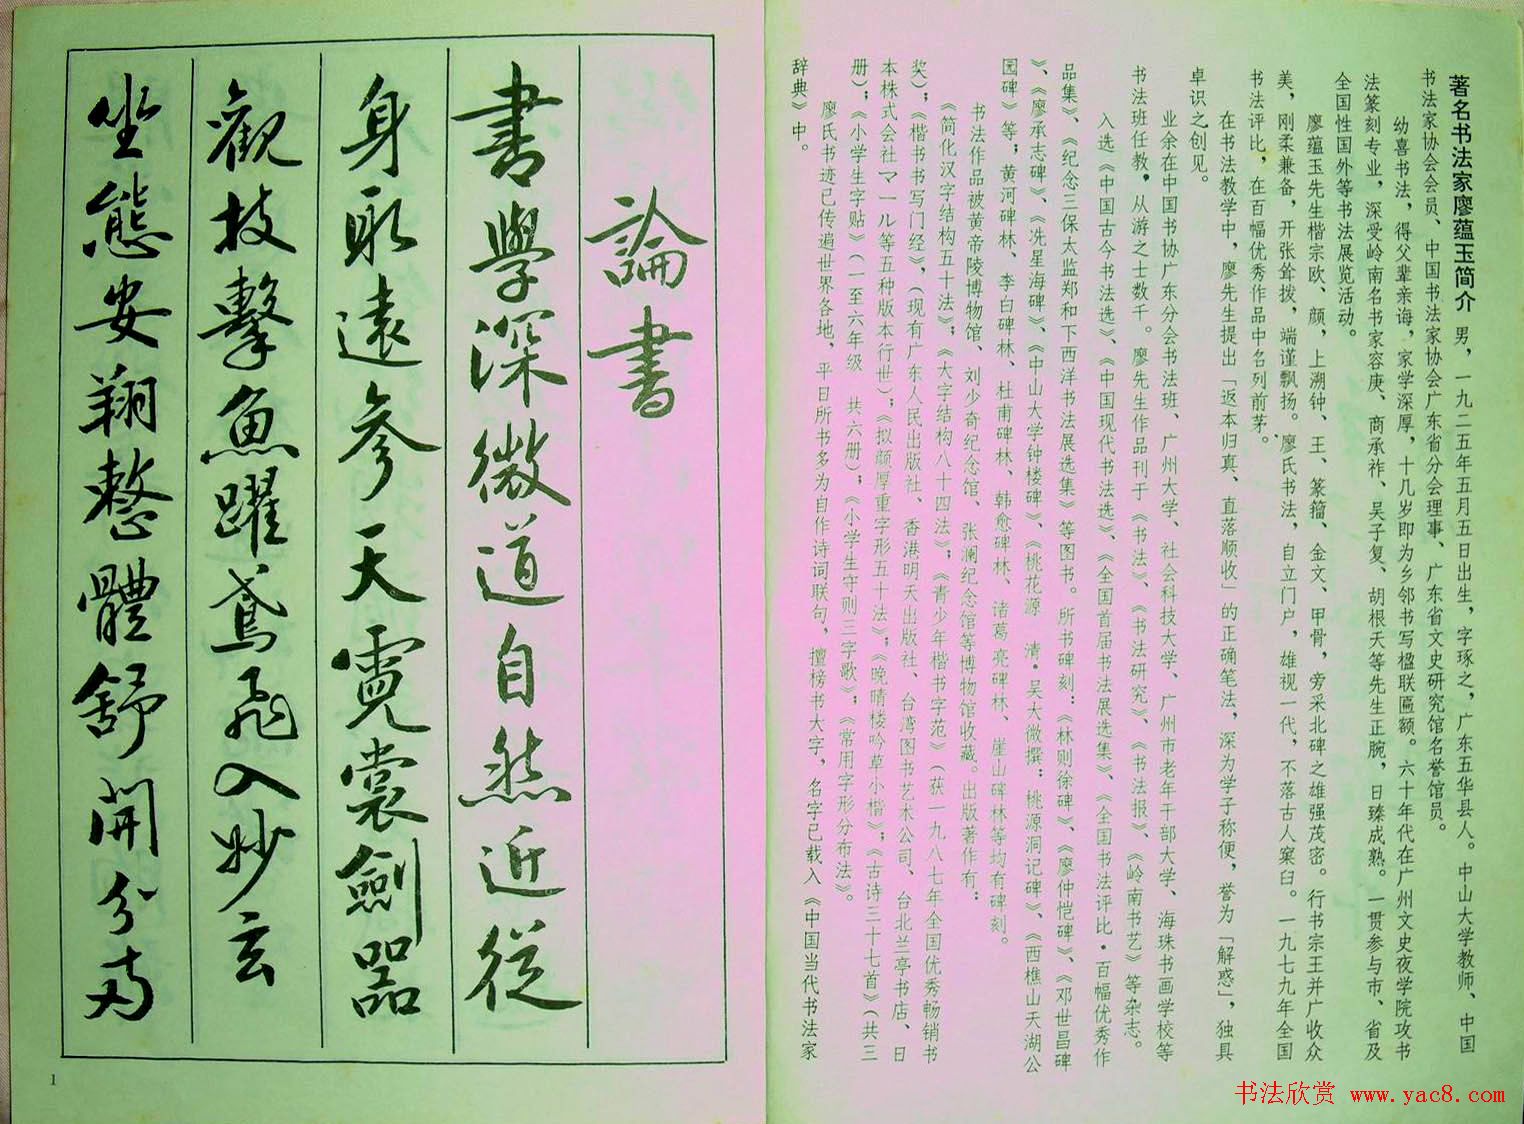 著名书法家廖蕴玉简介 男，一九二五年五月五日出生，字琢之，广东五华县人。中山大学教师、中国
书法家协会会员、中国书法家协会广东省分会理事、广东省文史研究馆名誉馆员。
幼喜书法，得父辈亲诲，家学深厚，十几岁即为乡邻书写楹联匾额。六十年代在广州文史夜学院攻书
法篆刻专业，深受岭南名书家容庚、商承祚、吴子复、胡根天等先生正腕，日臻成熟。一贯参与市、省及
全国性国外等书法展览活动。
廖蕴玉先生楷宗欧、颜，上溯钟、王、篆籀、金文、甲骨，旁采北碑之雄强茂密。行书宗王并广收众
美，刚柔兼备，开张耸拨，端谨飘扬。廖氏书法，自立门户，雄视一代，不落古人窠臼。一九七九年全国
书法评比，在百幅优秀作品中名列前茅。
在书法教学中，廖先生提出「返本归真、直落顺收」的正确笔法，深为学子称便，誉为「解惑」，独具
卓识之创见。
业余在中国书协广东分会书法班、广州大学、社会科技大学、广州市老年干部大学、海珠书画学校等
书法班任教，从游之士数千。廖先生作品刊于《书法》、《书法研究》、《书法报》、《岭南书艺》等杂志。
入选《中国古今书法选》、《中国现代书法选》、《全国首届书法展选集》、《全国书法评比·百幅优秀作
品集》、《纪念三保太监郑和下西洋书法展选集》等图书。所书碑刻：《林则徐碑》、《廖仲恺碑》、《邓世昌碑
》、《廖承志碑》、《冼星海碑》、《中山大学钟楼碑》、《桃花源 清·吴大微撰：桃源洞记碑》、《西樵山天湖公
园碑》等；黄河碑林、李白碑林、杜甫碑林、韩愈碑林、诸葛亮碑林、崖山碑林等均有碑刻。
书法作品被黄帝陵博物馆、刘少奇纪念馆、张澜纪念馆等博物馆收藏。出版著作有：
《简化汉字结构五十法》；《大字结构八十四法》；《青少年楷书字范》（获一九八七年全国优秀畅销书
奖）；《楷书书写门经》，（现有广东人民出版社、香港明天出版社、台湾图书艺术公司、台北兰亭书店、日
本株式会社マール等五种版本行世）；《拟颜厚重字形五十法》；《晚晴楼吟草小楷》；《古诗三十七首》（共三
册）；《小学生字贴》（一至六年级 共六册）；《小学生守则三字歌》；《常用字形分布法》。
廖氏书迹已传遍世界各地，平日所书多为自作诗词联句，擅榜书大字，名字已载入《中国当代书法家
辞典》中。
論書
書學深微道自然近從
身取遠參天霓裳劍器
觀技擊魚躍鳶飛入妙玄
坐態安翔整體舒開分布
1
书法欣赏 www.yac8.com